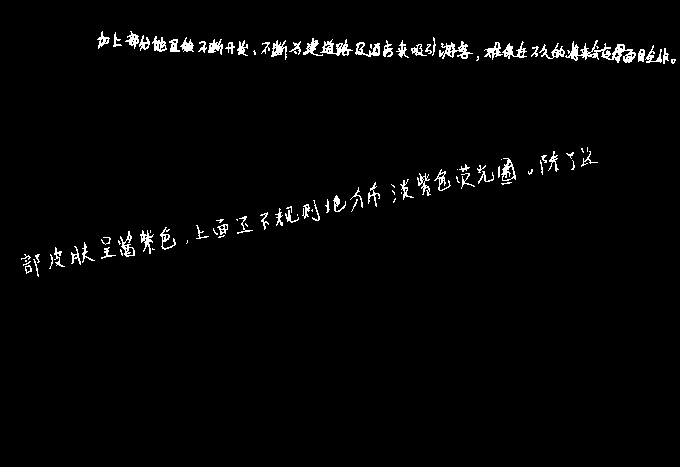 加上部分地区被不断开发、不断兴建道路及酒店来吸引游客，难保在不久的将来会变得面目全非。
部皮肤呈酱紫色，上面还不规则地分布淡紫色荧光圈。除了这